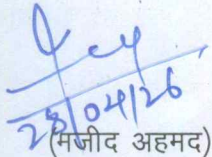 28/04/26
(मजीद अहमद)